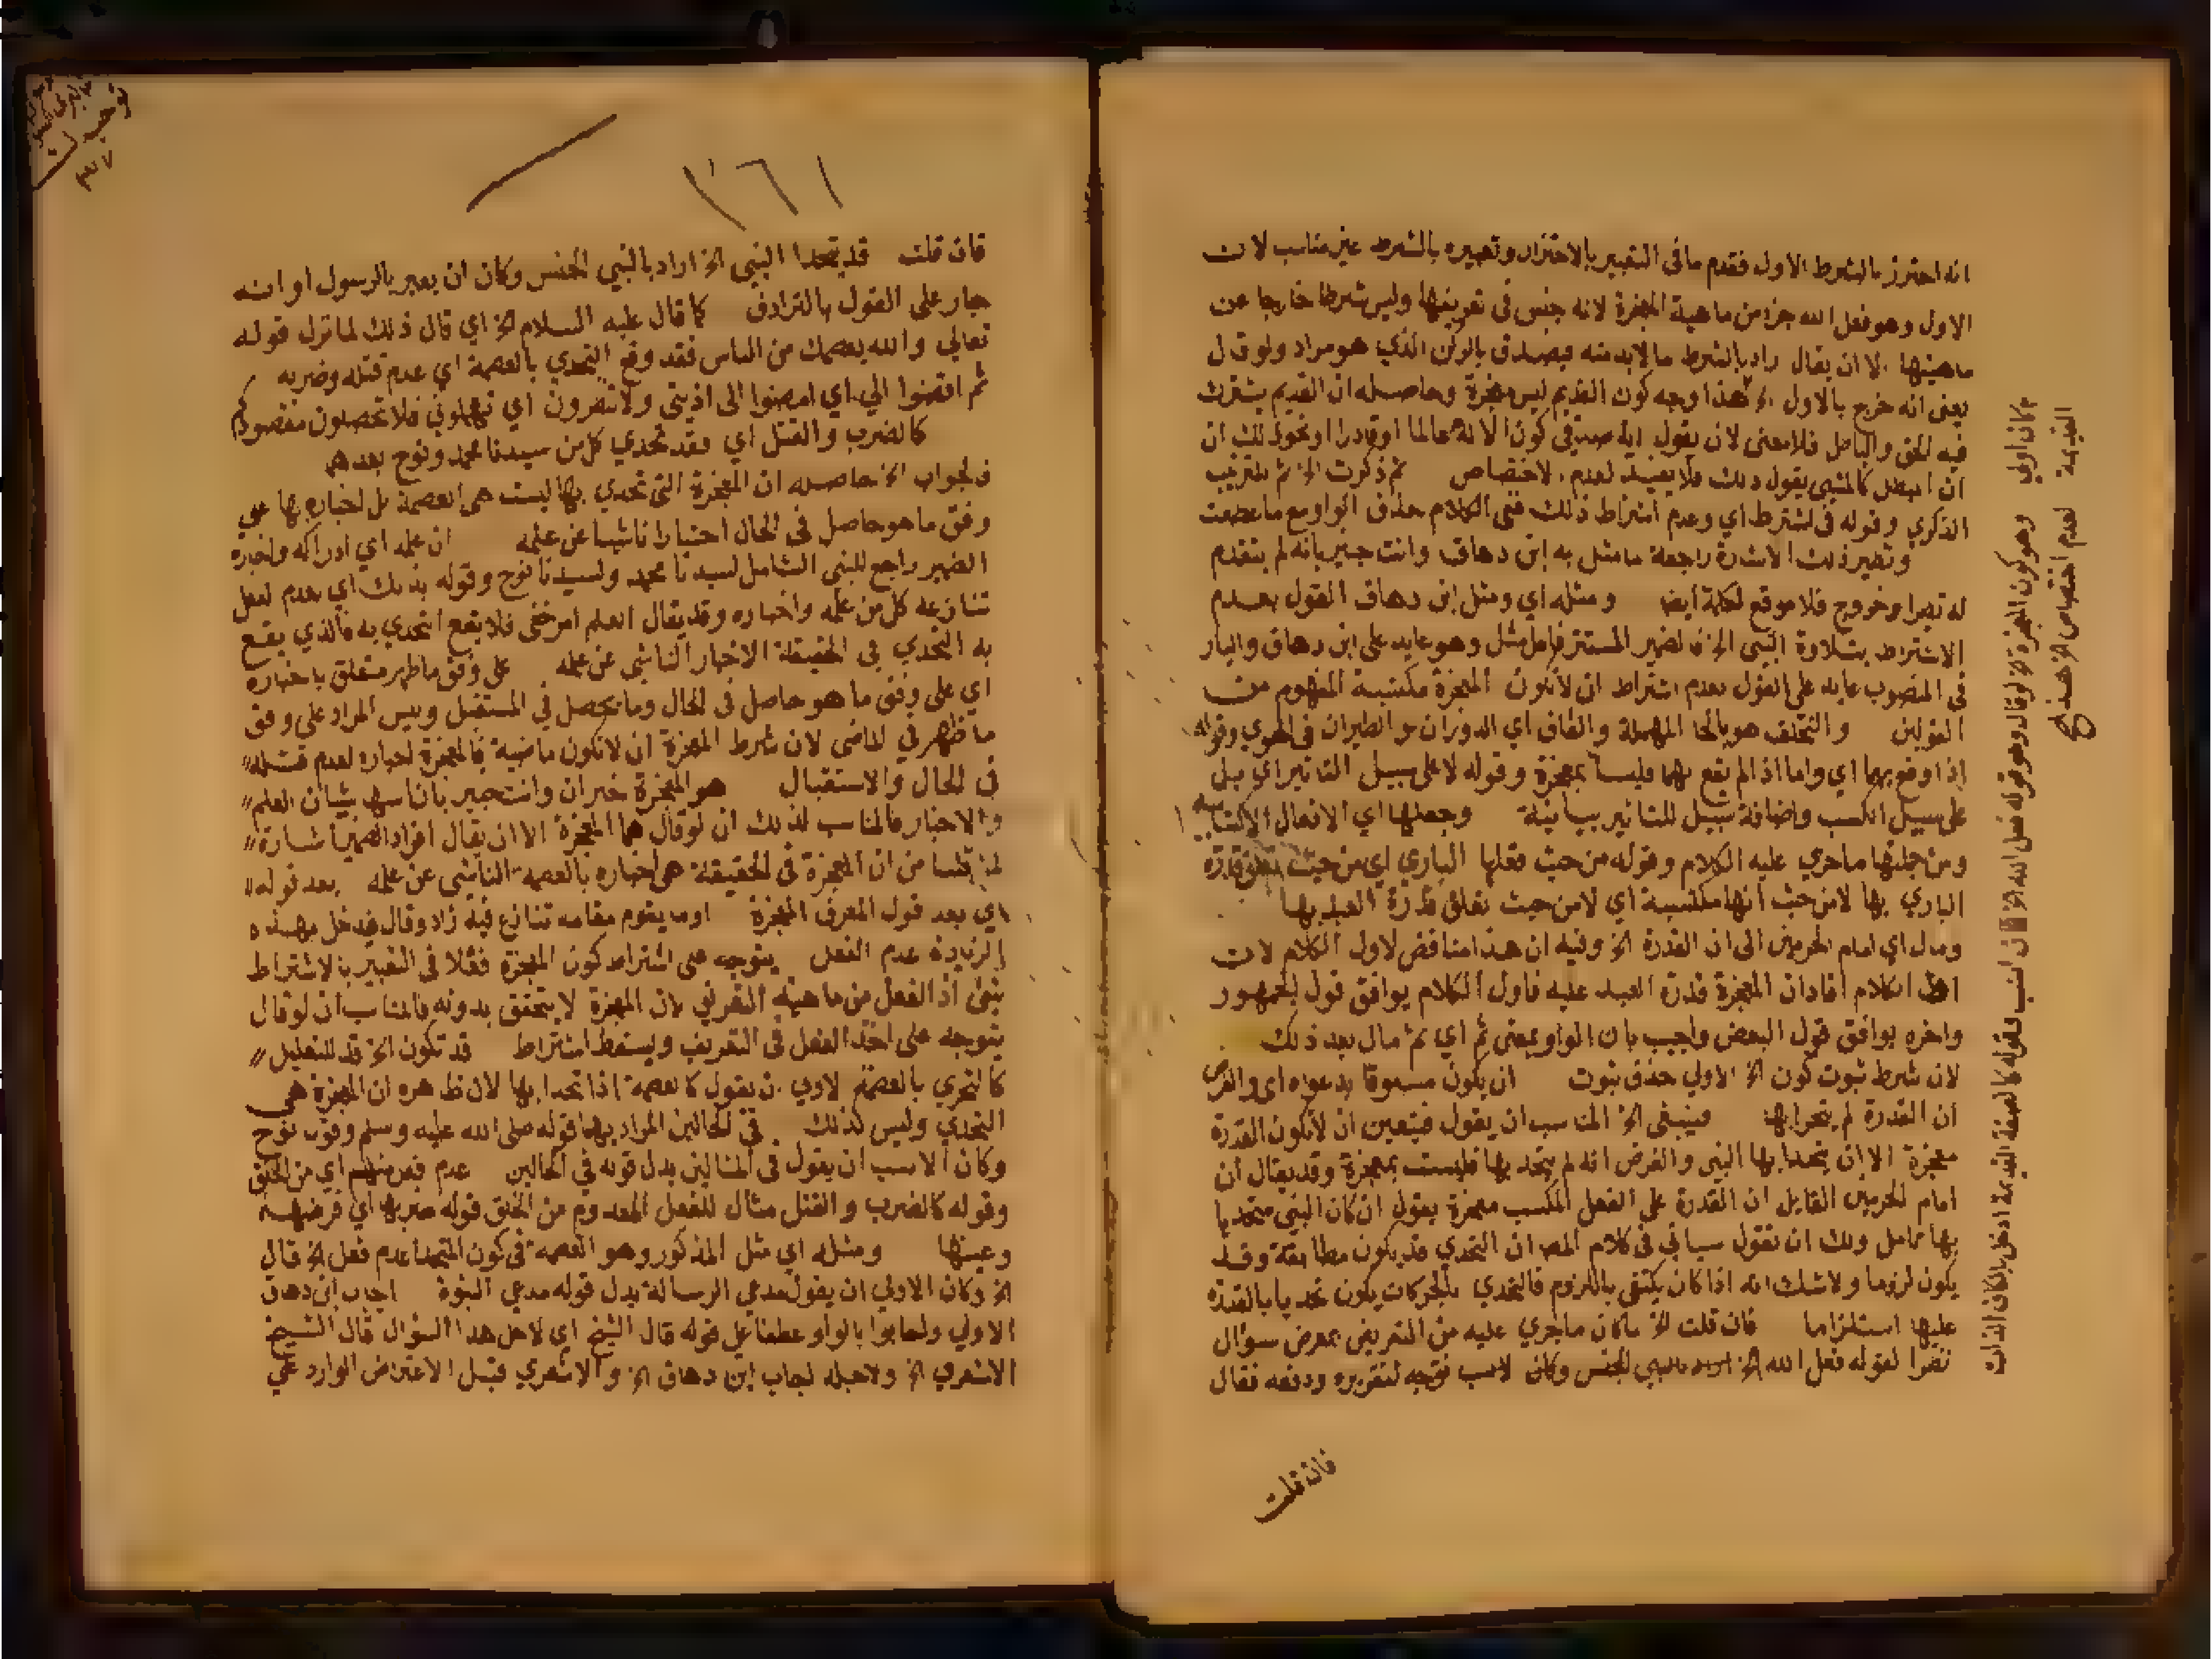 انه احترز بالشرط الاول فقدم ما في التعبير بالاحتراز وتعبيره بالشرط غير مناسب لان
الاول وهو فعل الله جزء من ماهية المعجزة لانه جنس في تعريفها وليس شرطا خارجا عن
ماهيتها الا ان يقال راد بالشرط ما لابد منه فيصدق بالركن الذي هو مراد ولو قال
يعني انه خرج بالاول الخ هذا وجه كون القديم ليس معجزة وحاصله ان القديم يشترك
فيه المحق والباطل فلا معنى لان يقول اية صدقي كون الاله عالما او قادرا او نحو ذلك ان
ان المبطل كالمتنبي يقول ذلك فلا يفيد لعدم الاختصاص ثم ذكرت الخ ثم للترتيب
الذكري وقوله في اشترط اي وعدم اشتراط ذلك ففي الكلام حذف الواو مع ما عطفت
وتصير ذلك الاشارة راجعة ما مثل به ابن دهاق وانت خبير بانه لم يتقدم
له تصيرا وخروج فلا موقع لكلمة ايضا ومثله اي ومثل ابن دهاق القول بعدم
الاشتراط بتلاوة النبي الخ فالضمير المستتر فاعل مثل وهو عايد على ابن دهاق والبارز
في المنصوب عايد على القول بعدم اشتراط ان لا تكون المعجزة مكتسبة المفهوم من
القولين والتحلق هو بالحا المهملة والقاف اي الدوران والطيران في الهوي وقوله
اذا وقع بهما اي واما اذا لم يقع بهما فليسا بمعجزة وقوله لا على سبيل التاثير اي بل
على سبيل الكسب واضافة سبيل للتاثير بيانية وجعلها اي الافعال الاكتسابية
ومن جملتها ما جري عليه الكلام وقوله من حيث فعلها الباري اي من حيث تعلق قدرة
الباري بها لا من حيث انها مكتسبة اي لا من حيث تعلق قدرة العبد بها
ومال اي امام الحرمين الى ان القدرة الخ وفيه ان هذا مناقض لاول الكلام لان
اول الكلام افاد ان المعجزة قدرة العبد عليه فاول الكلام يوافق قول الجمهور
واخره يوافق قول البعض واجيب بان الواو بمعنى ثم اي ثم مال بعد ذلك
لان شرط ثبوت كون الخ الاولي حذف ثبوت ان يكون مسبوقا بدعواه اي والفرض
ان القدرة لم يتحدا بها فينبغي الخ المناسب ان يقول فيتعين ان لا تكون القدرة
معجزة الا ان يتحدا بها النبي والفرض انه لم يتحد بها فليست بمعجزة وقد يقال ان
امام الحرمين القايل ان القدرة على الفعل المكتسب معجزة يقول ان كان النبي متحديا
بها تامل ولك ان تقول سياتي في كلام المص ان التحدي قد يكون مطابقة وقد
يكون لزوما ولا شك انه اذا كان يكتفى باللزوم فالتحدي بالحركات يكون تحديا بالقدرة
عليها استلزاما فان قلت الخ لما كان ما جري عليه من التعريف بمعرض سؤال
نظرا لقوله فعل الله الخ اراد بالنبي الجنس وكان الانسب توجه لتقريره ودفعه فقال
فان قلت
وهو كون المعجزة الخ لو قال وهو قوله فعل الله الخ كان انسب لقوله كالصفة القديمة ادخل بالكاف الذات
القديمة لعدم اختصاص الخ
كان اولي
١٦١
فان قلت قد تحدا النبي الخ اراد بالنبي الجنس وكان ان يعبر بالرسول او انه
جار على القول بالترادف كما قال عليه السلام الخ اي قال ذلك لما نزل قوله
تعالي والله يعصمك من الناس فقد وقع التحدي بالعصمة اي عدم قتله وضربه
ثم اقضوا الي اي امضوا الى اذيتي ولا تنظرون اي تمهلوني فلا تحصلون مقصودكم
كالضرب والقتل اي فقد تحدي كل من سيدنا محمد ونوح بعدهما
فالجواب الخ حاصله ان المعجزة التي تحدي بها ليست هي العصمة بل اخباره بها على
وفق ما هو حاصل في الحال اخبارا ناشيا عن علمه ان علمه اي ادراكه واخباره
الضمير راجع للنبي الشامل لسيدنا محمد ولسيدنا نوح وقوله بذلك اي بعدم الفعل
تنازعه كل من علمه واخباره وقد يقال العلم امر خفي فلا يقع التحدي به فالذي يقع
به التحدي في الحقيقة الاخبار الناشي عن علمه على وفق ما ظهر متعلق باخباره
اي على وفق ما هو حاصل في الحال وما يحصل في المستقبل وليس المراد على وفق
ما ظهر في الماضي لان شرط المعجزة ان لا تكون ماضية فالمعجزة اخباره لعدم قتله
في الحال والاستقبال هو المعجزة خبر ان وانت خبير بان اسمها شيئان العلم
والاخبار فالمناسب لذلك ان لو قال هما المعجزة الا ان يقال افراد الضمير اشارة
لما قلنا من ان المعجزة في الحقيقة هي اخباره بالعصمة الناشي عن علمه بعد قوله
اي بعد قول المعرف المعجزة او ما يقوم مقامه تنازع فيه زاد وقال فدخل بهذه
الزيادة عدم الفعل يتوجه على اشتراط كون المعجزة فعلا في التعبير بالاشتراط
شي اذ الفعل من ماهية التعريف لان المعجزة لا يتحقق بدونه فالمناسب ان لو قال
يتوجه على اخذ الفعل في التعريف ويسقط اشتراط قد تكون الخ قد للتقليل
كالتحري بالعصمة الاولي ان يقول كالعصمة اذا تحدا بها لان ظاهره ان المعجزة هي
التحدي وليس كذلك في الحالين المراد بهما قوله صلى الله عليه وسلم وقول نوح
وكان الانسب ان يقول في المثالين بدل قوله في الحالين عدم فعل منهم اي من الخلق
وقوله كالضرب والقتل مثال للفعل المعدوم من الخلق قوله ضربها اي فرضها
وعينها ومثله اي مثل المذكور وهو العصمة في كون المتحدا عدم فعل الخ قال
الخ وكان الاولي ان يقول مدعي الرسالة بدل قوله مدعي النبوة اجاب ابن دهاق
الاولي ولجابوا بالواو عطفا على قوله قال الشيخ اي لاجل هذا السؤال قال الشيخ
الاشعري الخ ولاجله اجاب ابن دهاق الخ والاشعري قبل الاعتراض الوارد على